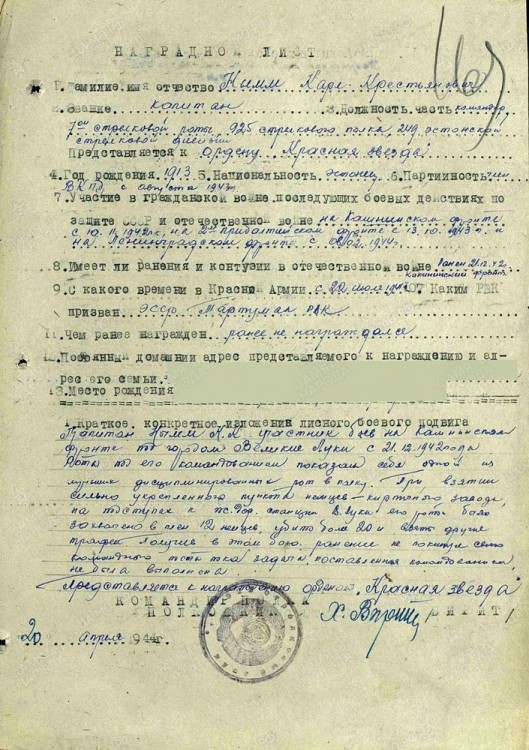 НАГРАДНОЙ ЛИСТ
1. Фамилие, имя отчество Нымм Карл Крестьянович
2. Звание капитан 3. Должность, часть командир
7ой стрелковой роты 925 стрелкового полка, 249 эстонской
стрелковой дивизии
Представляется к ордену „Красная звезда"
4. Год рождения 1913 5. Национальность эстонец 6. Партийность член
ВКП(б) с августа 1943г.
7. Участие в гражданской войне, последующих боевых действиях по
защите СССР и отечественной войне на Калининском фронте
с 10.11.1942г., на 2ом Прибалтийском фронте с 13.10.1943г. и
на Ленинградском фронте с 02.1944г.
8. Имеет ли ранения и контузии в отечественной войне Ранен 21.12.42
калининский фронт
9. С какого времени в Красной Армии с 22 июля 1940г. Каким РВК
призван. ЭССР, РВК
11. Чем ранее награжден ранее не награждался
12. Постоянный домашний адрес представляемого к награждению и ад-
рес его семьи.
13. Место рождения
1. Краткое, конкретное изложение личного боевого подвига
Капитан Нымм К.К. участник боев на Калининском
фронте под городом Великие Луки с 21.12.1942 года
Рота под его командованием показала себя одной из
лучших дисциплинированных рот в полку. При взятии
сильно укрепленного пункта немцев – кирпичного завода,
на подступах к ж.дор. станции В.Луки его рота было
захвачено в плен 12 немцев, убито более 20 и взяты другие
трофеи. Получив в этом бою ранение не покинул своего
командного поста пока задача, поставленная командованием,
не была выполнена
Представляется к награждению орденом „Красная звезда"
КОМАНДИР ПОЛКА
ПОЛКОВНИК
20 апреля 1944 г.